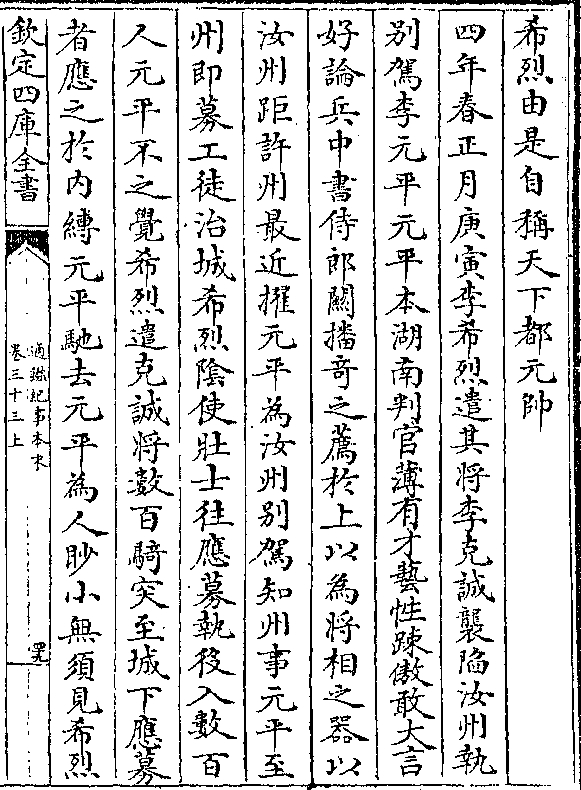 希烈由是自稱天下都元帥
四年春正月庚寅李希烈遣其將李克誠襲陷汝州執
别駕李元平元平本湖南判官薄有才藝性踈傲敢大言
好論兵中書侍郎關播奇之薦於上以為將相之器以
汝州距許州最近擢元平為汝州别駕知州事元平至
州即募工徒治城希烈陰使壯士往應募執役入數百
人元平不之覺希烈遣克誠將數百騎突至城下應募
者應之於内縛元平馳去元平為人眇小無須見希烈
欽定四庫全書
通鑑紀事本末
卷三十三上
四九